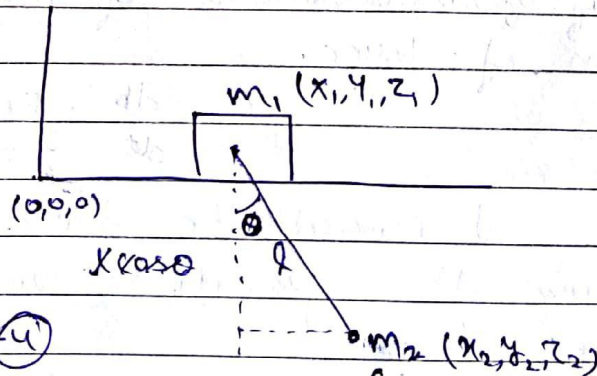 m₁ (x₁, y₁, z₁)
(0,0,0)
θ
l cosθ
l
u
m₂ (x₂, y₂, z₂)